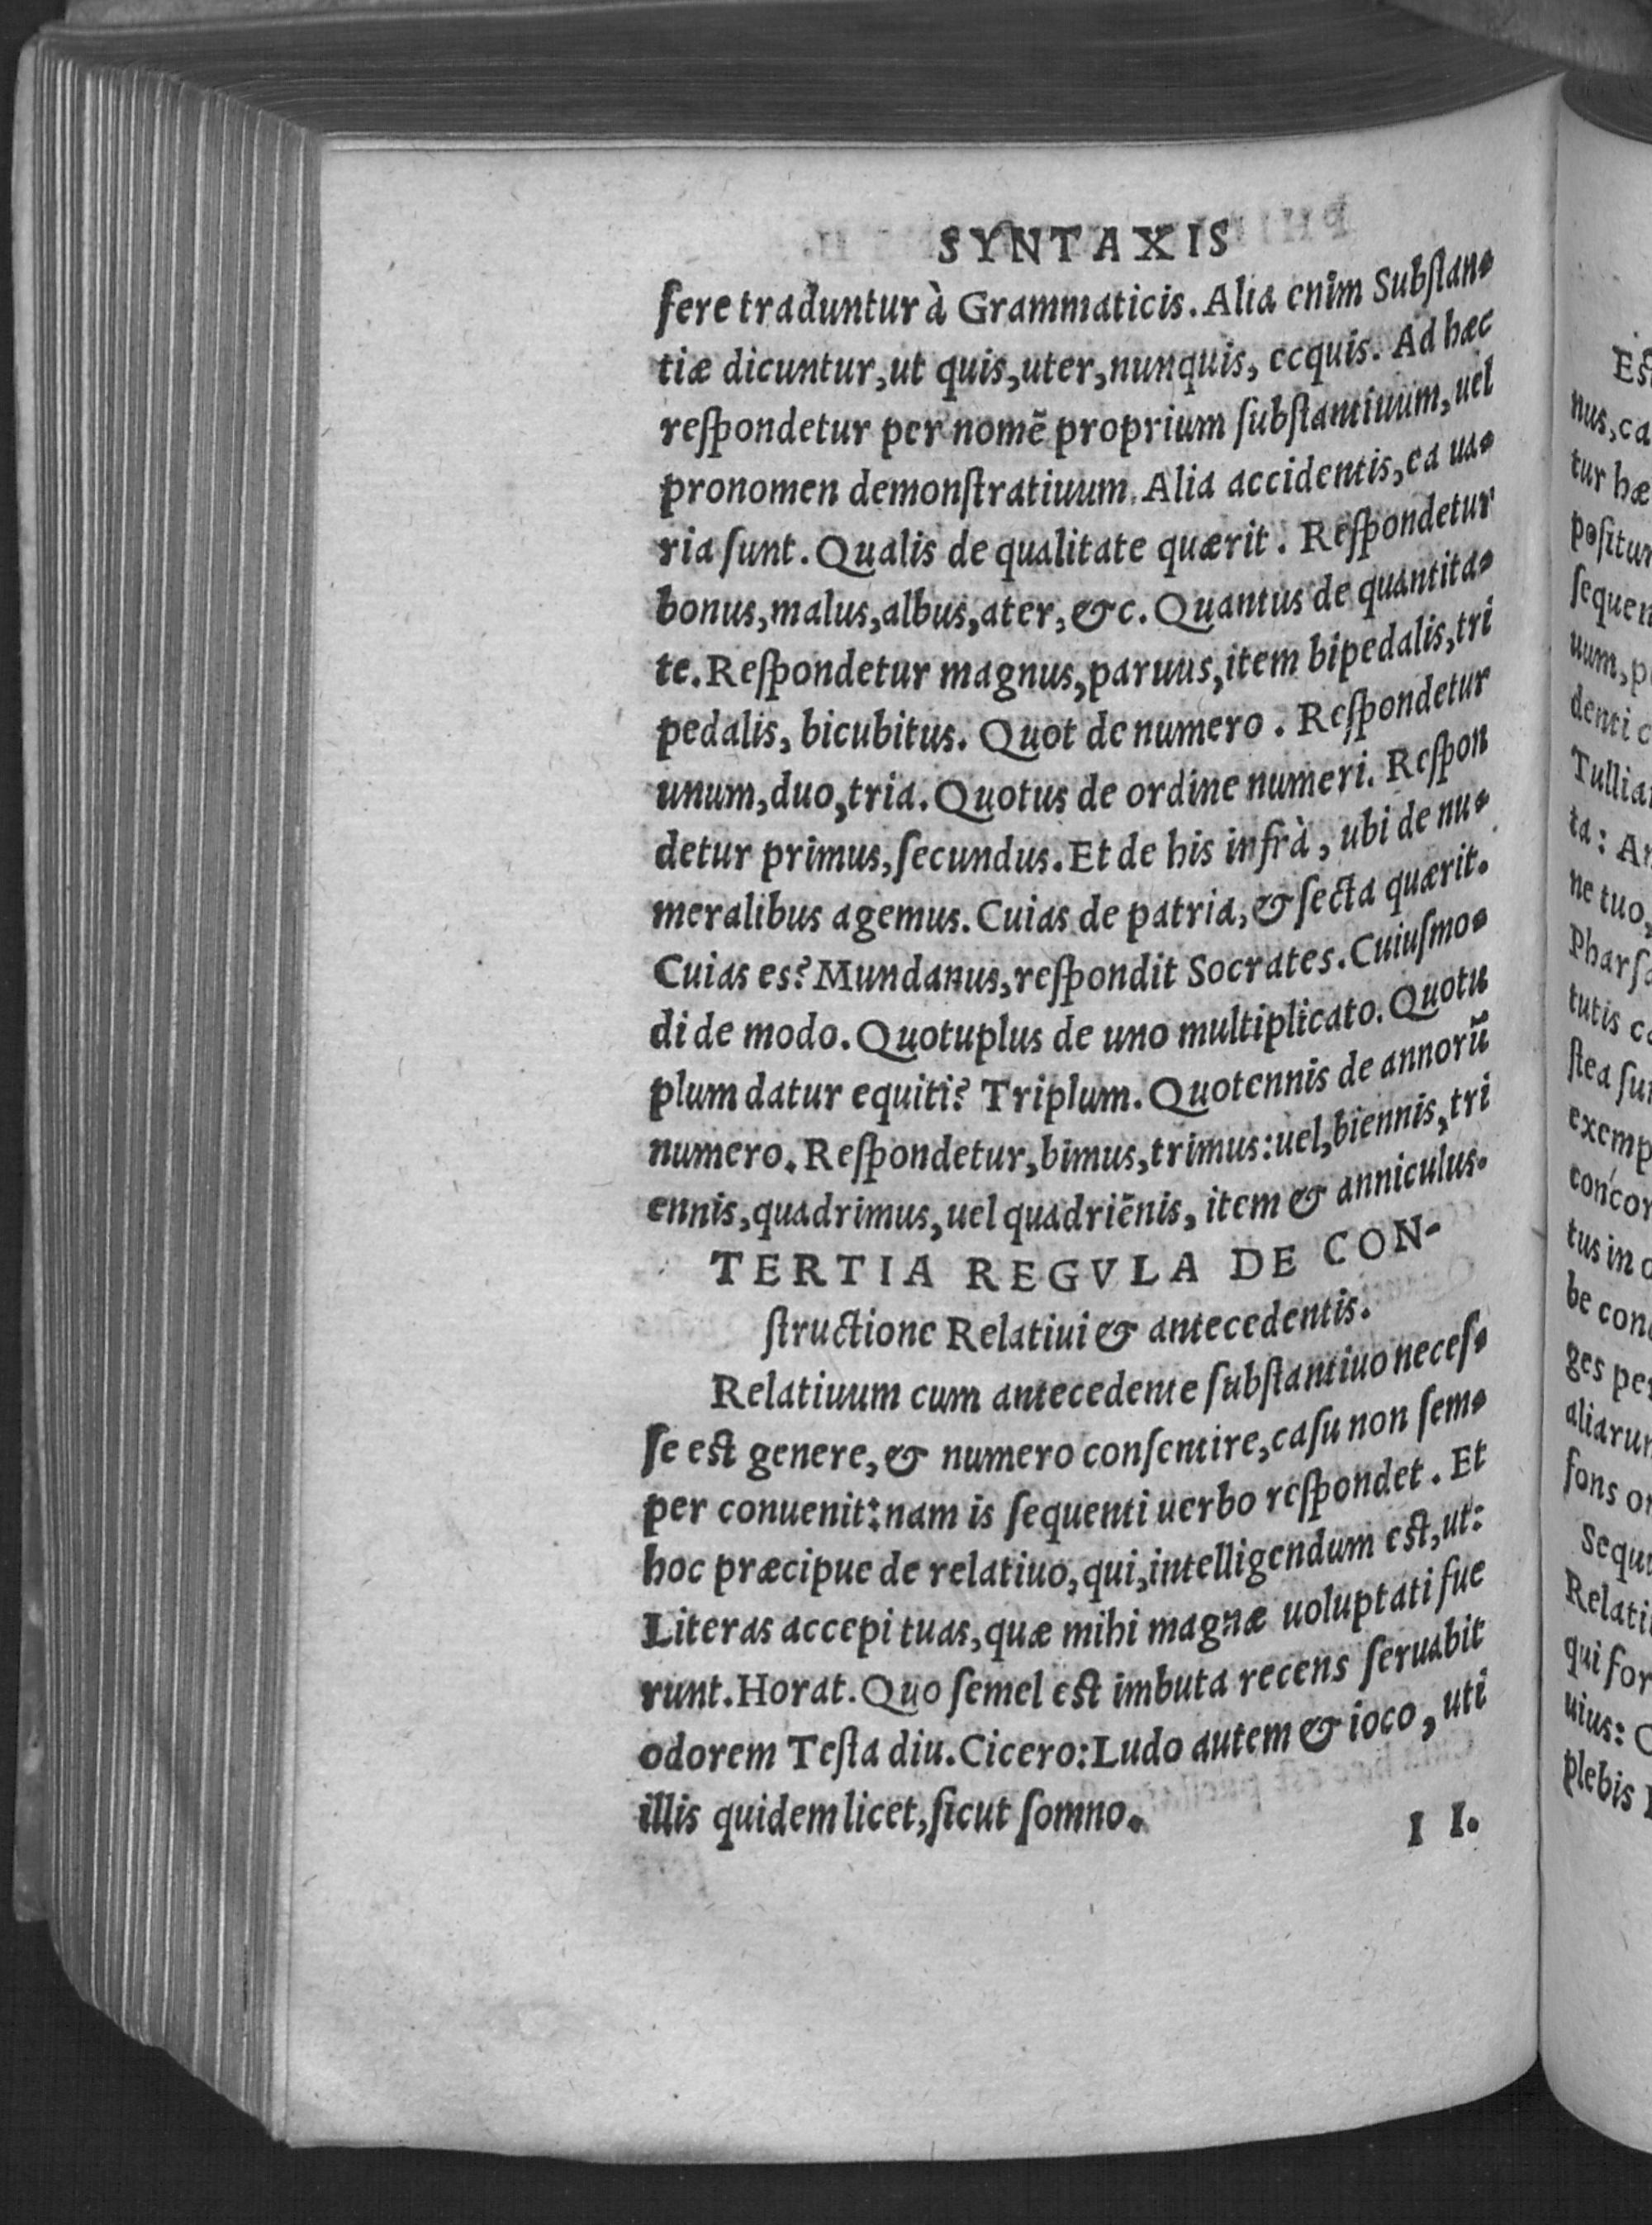 SYNTAXIS
fere traduntur à Grammaticis. Alia enim Substan-
tiæ dicuntur, ut quis, uter, nunquis, ecquis. Ad hæc
respondetur per nomē proprium substantiuum, uel
pronomen demonstratiuum. Alia accidentis, ea ua-
ria sunt. Qualis de qualitate quærit. Respondetur
bonus, malus, albus, ater, &c. Quantus de quantita-
te. Respondetur magnus, paruus, item bipedalis, tri
pedalis, bicubitus. Quot de numero. Respondetur
unum, duo, tria. Quotus de ordine numeri. Respon
detur primus, secundus. Et de his infrà, ubi de nu-
meralibus agemus. Cuias de patria, & secta quærit.
Cuias es? Mundanus, respondit Socrates. Cuiusmo-
di de modo. Quotuplus de uno multiplicato. Quotu
plum datur equiti? Triplum. Quotennis de annorū
numero. Respondetur, bimus, trimus: uel, biennis, tri
ennis, quadrimus, uel quadriēnis, item & anniculus.
TERTIA REGVLA DE CON-
structione Relatiui & antecedentis.
Relatiuum cum antecedente substantiuo neces-
se est genere, & numero consentire, casu non sem-
per conuenit: nam is sequenti uerbo respondet. Et
hoc præcipue de relatiuo, qui, intelligendum est, ut:
Literas accepi tuas, quæ mihi magnæ uoluptati fue
runt. Horat. Quo semel est imbuta recens seruabit
odorem Testa diu. Cicero: Ludo autem & ioco, uti
illis quidem licet, sicut somno.
I I.
nus, ca
tur hæ
positur
sequen
uum, p
denti c
Tullia
ta: An
ne tuo,
Phars
tutis ca
stea su
exemp
concor
tus in o
be con
ges per
aliarum
fons or
Sequ
Relati
qui for
uius: C
plebis